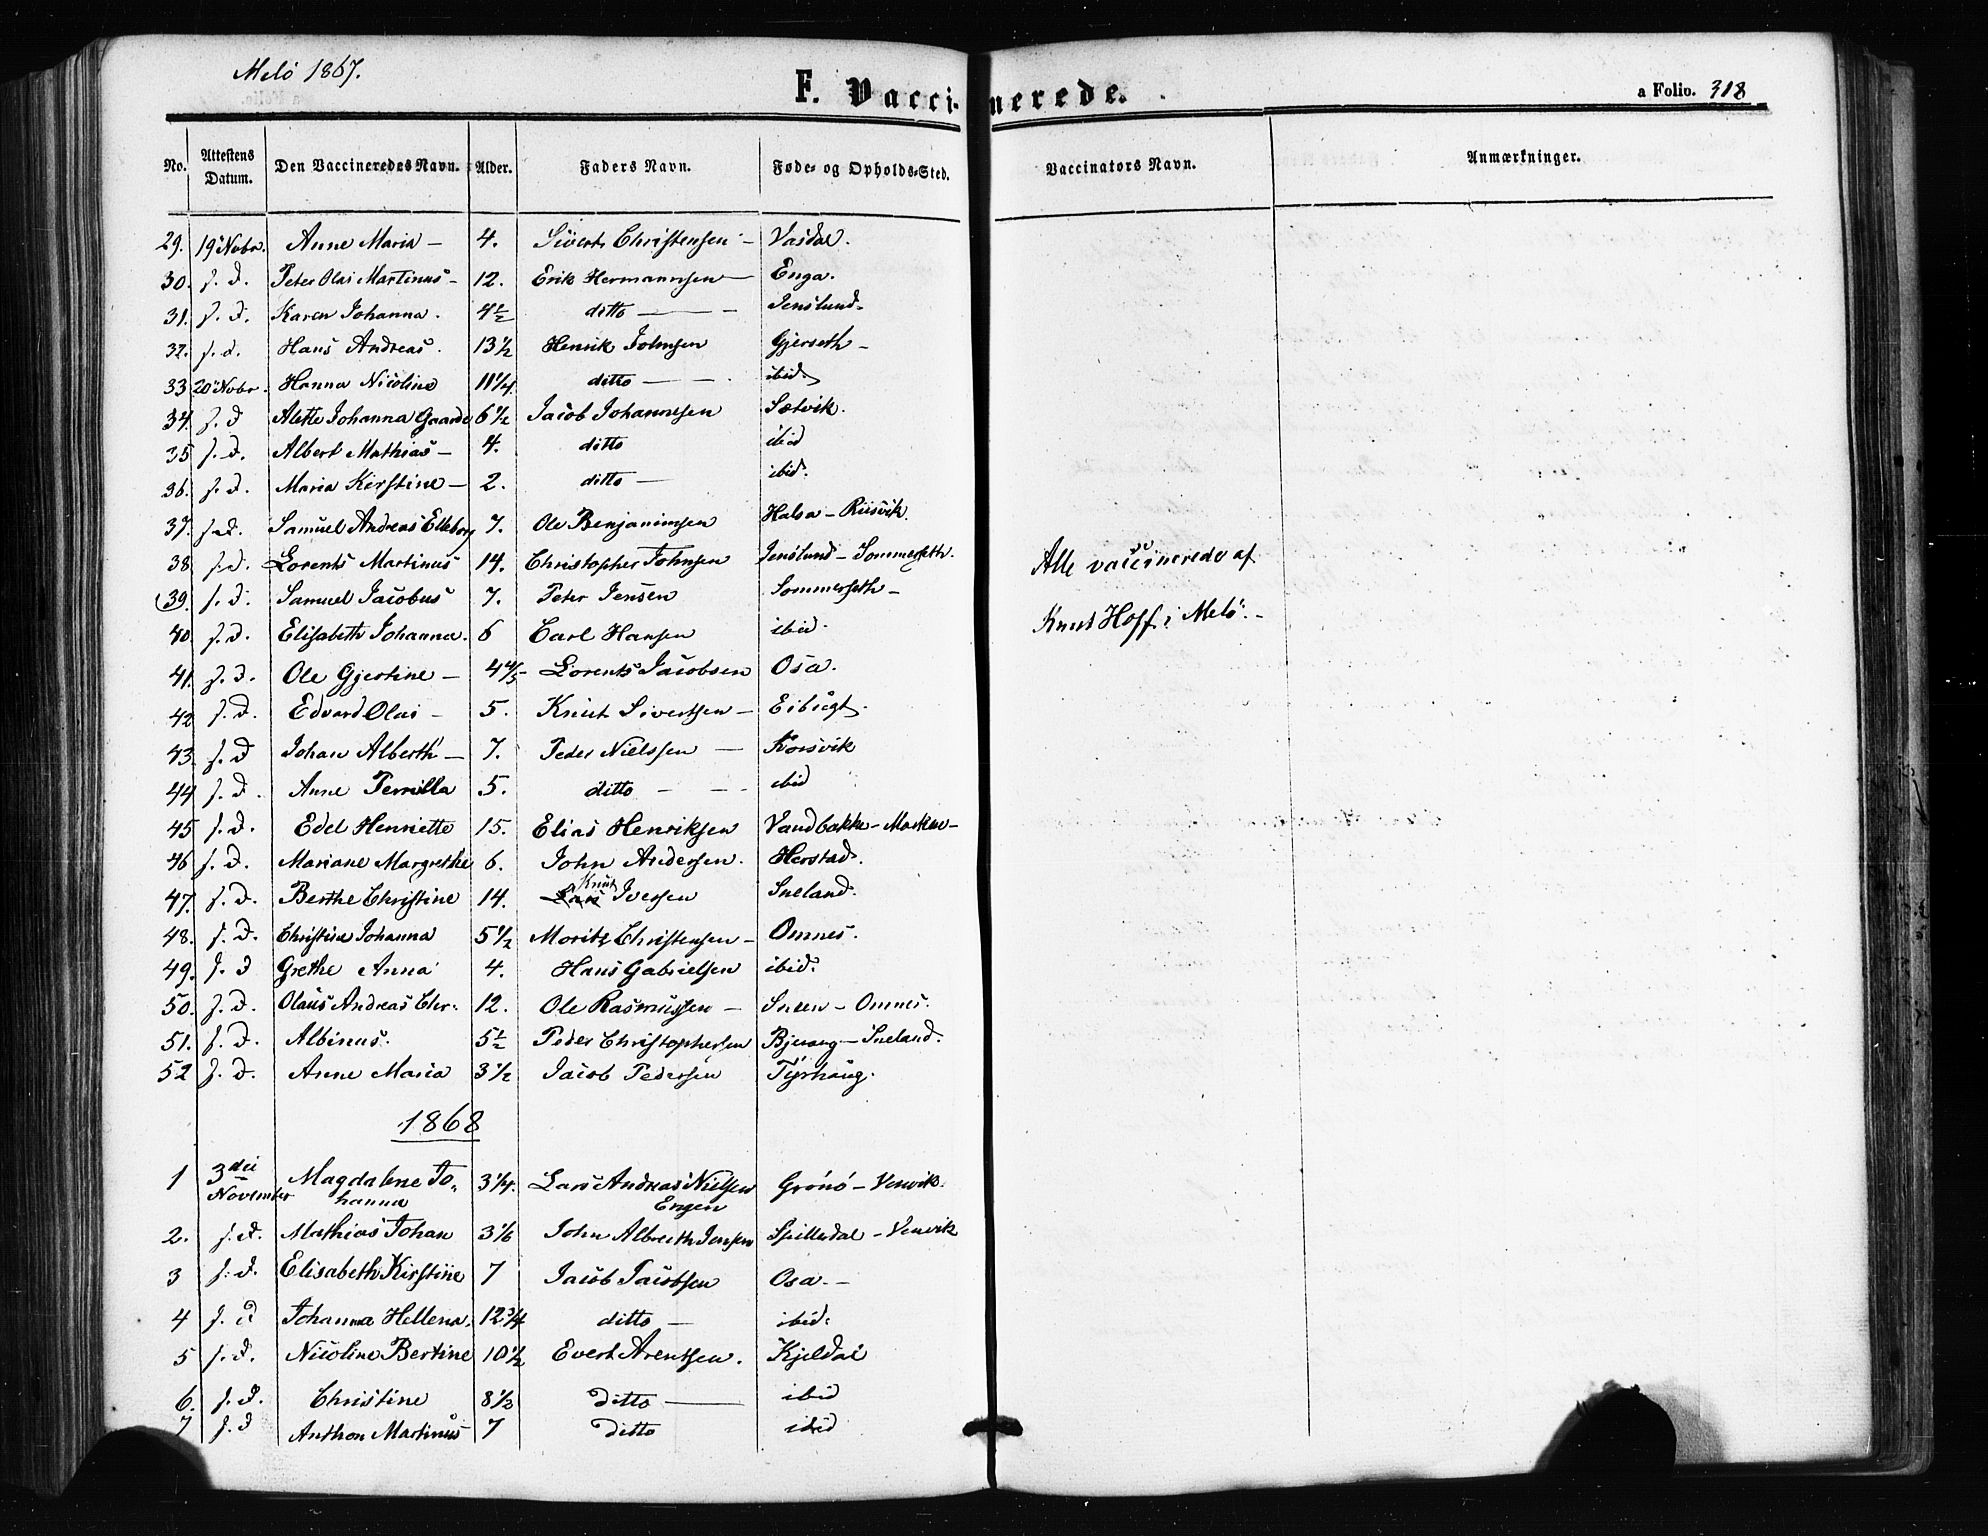 Melö 1867.
F. Vaccinerede.
a Folio. 318
No. Attestens Datum. Den Vaccineredes Navn. Alder. Faders Navn. Føde- og Opholds-Sted. Vaccinators Navn. Anmærkninger.
29. 19 Novbr. Anne Maria – 4. Sivert Christensen – Vasdal.
30. s. d. Peter Olai Martinus – 12. Erik Hermannsen – Enga.
31. s. d. Karen Johanna. 4½ ditto – Jenslund.
32. s. d. Hans Andreas. 13½ Henrik Johnsen Gjerseth –
33 20 Novbr. Hanna Nicoline 11¼ ditto – ibid.
34. s. d Alette Johanna Gaarde 6½ Jacob Johannesen Sætvik.
35 s. d. Albert Mathias – 4. ditto ibid
36. s. d. Maria Kirstine – 2. ditto – ibid.
37. s. d. Samuel Andreas Elleborg 7. Ole Benjaminsen Halsa – Riisvik.
38 s. d. Lorents Martinus 14. Christopher Johnsen Jenslund – Sommerseth.
Alle vaccinerede af
39. s. d. Samuel Jacobus 7. Peter Jensen Sommerseth –
40 s. d. Elisabeth Johanna. 6 Carl Hansen ibid.
Knut Hoff i Melö. –
41. s. d. Ole Gjertine – 4⅘ Lorents Jacobsen Osa.
42 s. d. Edvard Olai – 5. Knut Sivertsen – Eibugt.
43. s. d Johan Alberth – 7. Peder Nielssen – Korsvik
44 s. d. Anne Pernilla 5. ditto – ibid
45 s. d. Edel Henriette 15. Elias Henriksen Vandbakke –
46 s. d. Mariane Margrethe 6. John Andersen. Herstad.
47. s. d. Berthe Christine 14. Knut Iversen Sneland.
48. s. d. Christine Johanna 5½ Moritz Christensen – Omnes.
49. s. d Grethe Anna 4. Hans Gabrielsen ibid.
50. s. d. Olaus Andreas Chr. 12. Ole Rasmussen – Sneen – Omnes.
51. s. d. Albinus. 5½ Peder Christophersen Bjerang – Sneland.
52 s. d. Anne Maria 3½ Jacob Pedersen Tyrhaug.
1868
1 3die November Magdalene Johanna 3¼. Lars Andreas Nielsen Engen Grönö – Venvik.
2. s. d. Mathias Johan 3⅙ John Albreth Jensen Spilderdal – Venvik
3 s. d. Elisabeth Kirstine 7 Jacob Jacobsen Osa. –
4 s. d Johanna Hellena. 12¾ ditto – ibid.
5 s. d. Nicoline Bertine 10½ Evert Arentsen. Kjeldal
6. s. d. Christine 8½ ditto – ibid
7 s. d Anthon Martinus 7 ditto ibid